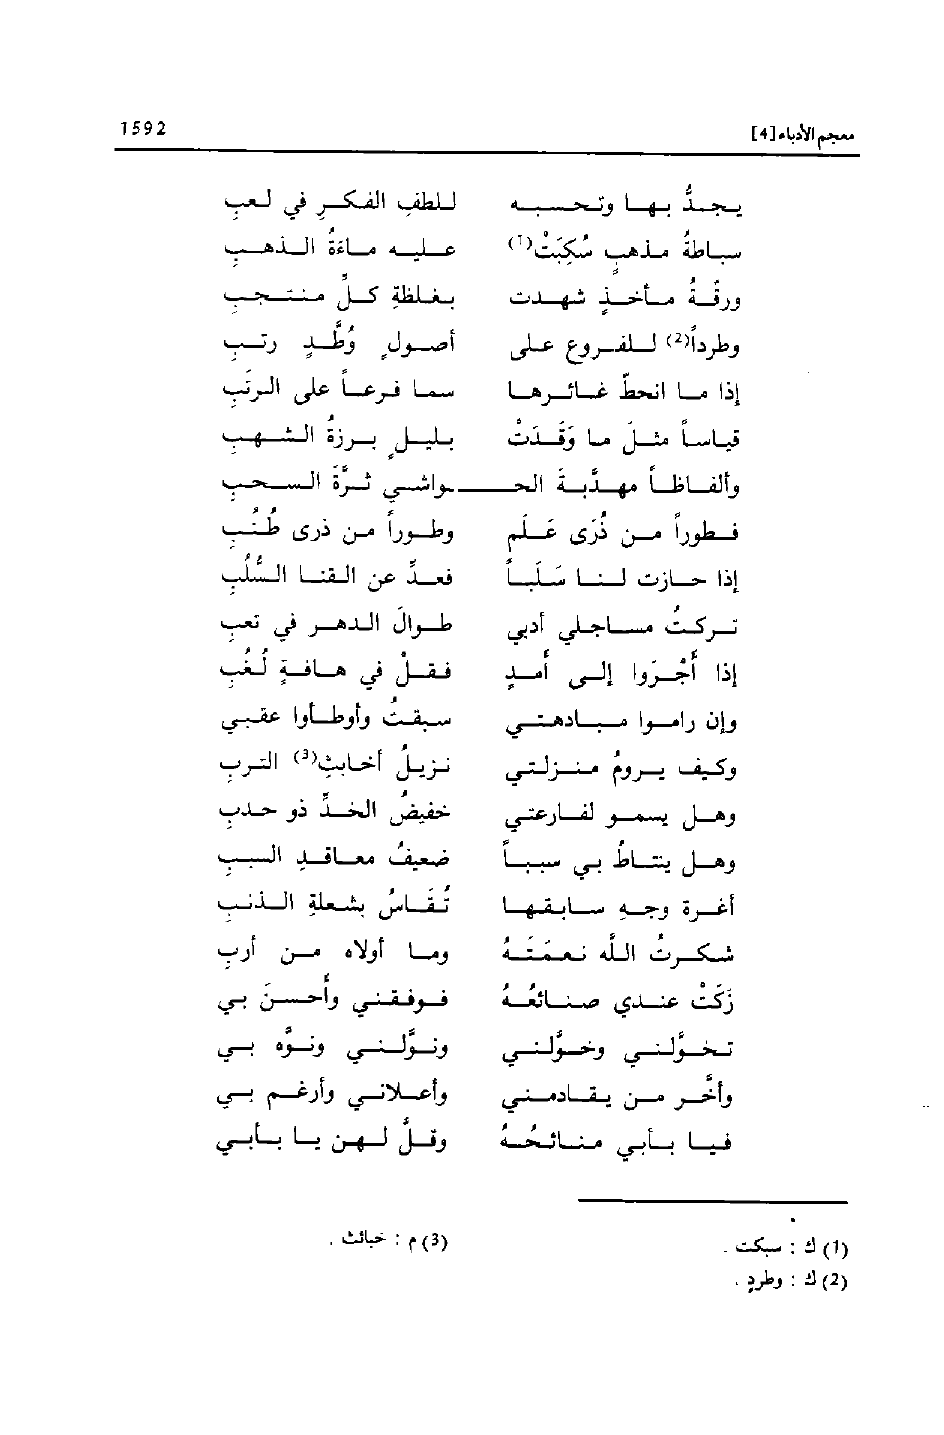 معجم الأدباء [4] 1592
يجدُّ بها وتحسبه للطفِ الفكر في لعبِ
سباطةُ مذهبٍ سُكِبَتْ(1) عليه ماءةُ الذهبِ
ورقةُ مأخذٍ شهدت بغلظةِ كلِّ منتحبِ
وطرداً(2) للفروع على أصولٍ وُطَّدٍ رتبِ
إذا ما انحطَّ غائرها سما فرعاً على الرتَبِ
قياساً مثلَ ما وَقَدَتْ بليلٍ برزةُ الشهبِ
وألفاظاً مهذَّبةَ الحواشي ثرَّةَ السحبِ
فطوراً من ذُرَى عَلَمٍ وطوراً من ذرى طُنُبِ
إذا حازت لنا سَلَباً فعدِّ عن القنا السُّلُبِ
تركتُ مساجلي أدبي طوالَ الدهر في تعبِ
إذا أُجْرَوا إلى أمدٍ فقلْ في هافةٍ لُغُبِ
وإن راموا مبادهتي سبقتُ وأوطأوا عقبي
وكيف يرومُ منزلتي نزيلُ أخابثِ(3) التربِ
وهل يسمو لقارعتي خفيضُ الخدِّ ذو حدبِ
وهل ينتاطُ بي سبباً ضعيفُ معاقد السببِ
أغرة وجه سابقها تُقَاسُ بشعلةِ الذنبِ
شكرتُ اللَّه نعمَتَهُ وما أولاه من أربِ
زكَتْ عندي صنائعُهُ فوفقني وأحسنَ بي
تخوَّلني وخوَّلني ونوَّلني ونوَّه بي
وأخَّر من يقادمني وأعلاني وأرغم بي
فيا بأبي منائحُهُ وقلَّ لهن يا بابي
(1) ك : سبكت .
(2) ك : وطردٍ .
(3) م : خبائث .